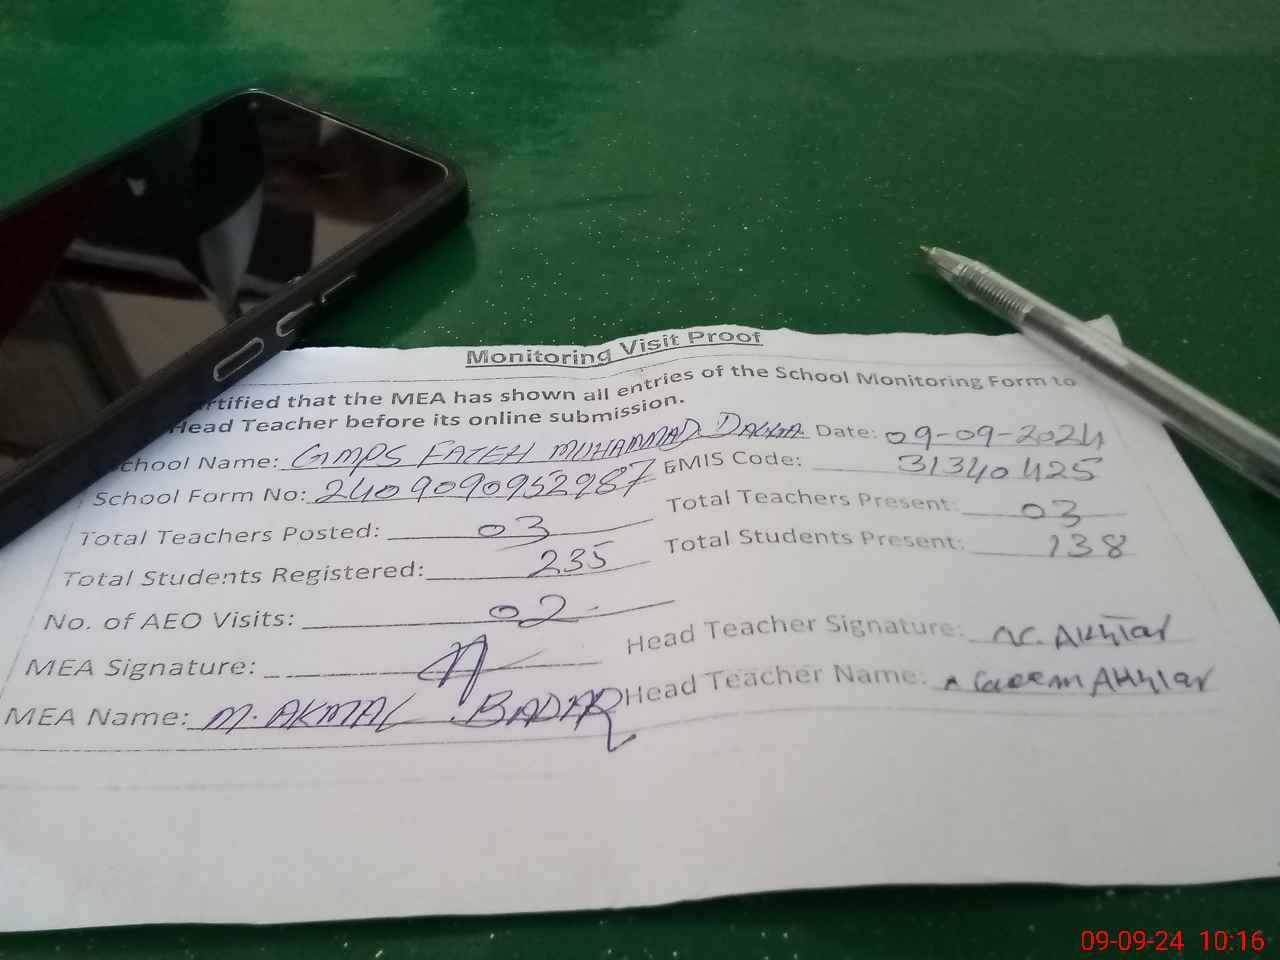 Monitoring Visit Proof
rtified that the MEA has shown all entries of the School Monitoring Form to
Head Teacher before its online submission.
chool Name: GMPS FATEH MUHAMMAD DAGGA Date: 09-09-2024
School Form No: 2409090952987 EMIS Code: 31340425
Total Teachers Posted: 03 Total Teachers Present: 03
Total Students Registered: 235 Total Students Present: 138
No. of AEO Visits: 02
MEA Signature: Head Teacher Signature: Akhtar
MEA Name: M. AKMAL BADAR Head Teacher Name: Akhtar
09-09-24 10:16